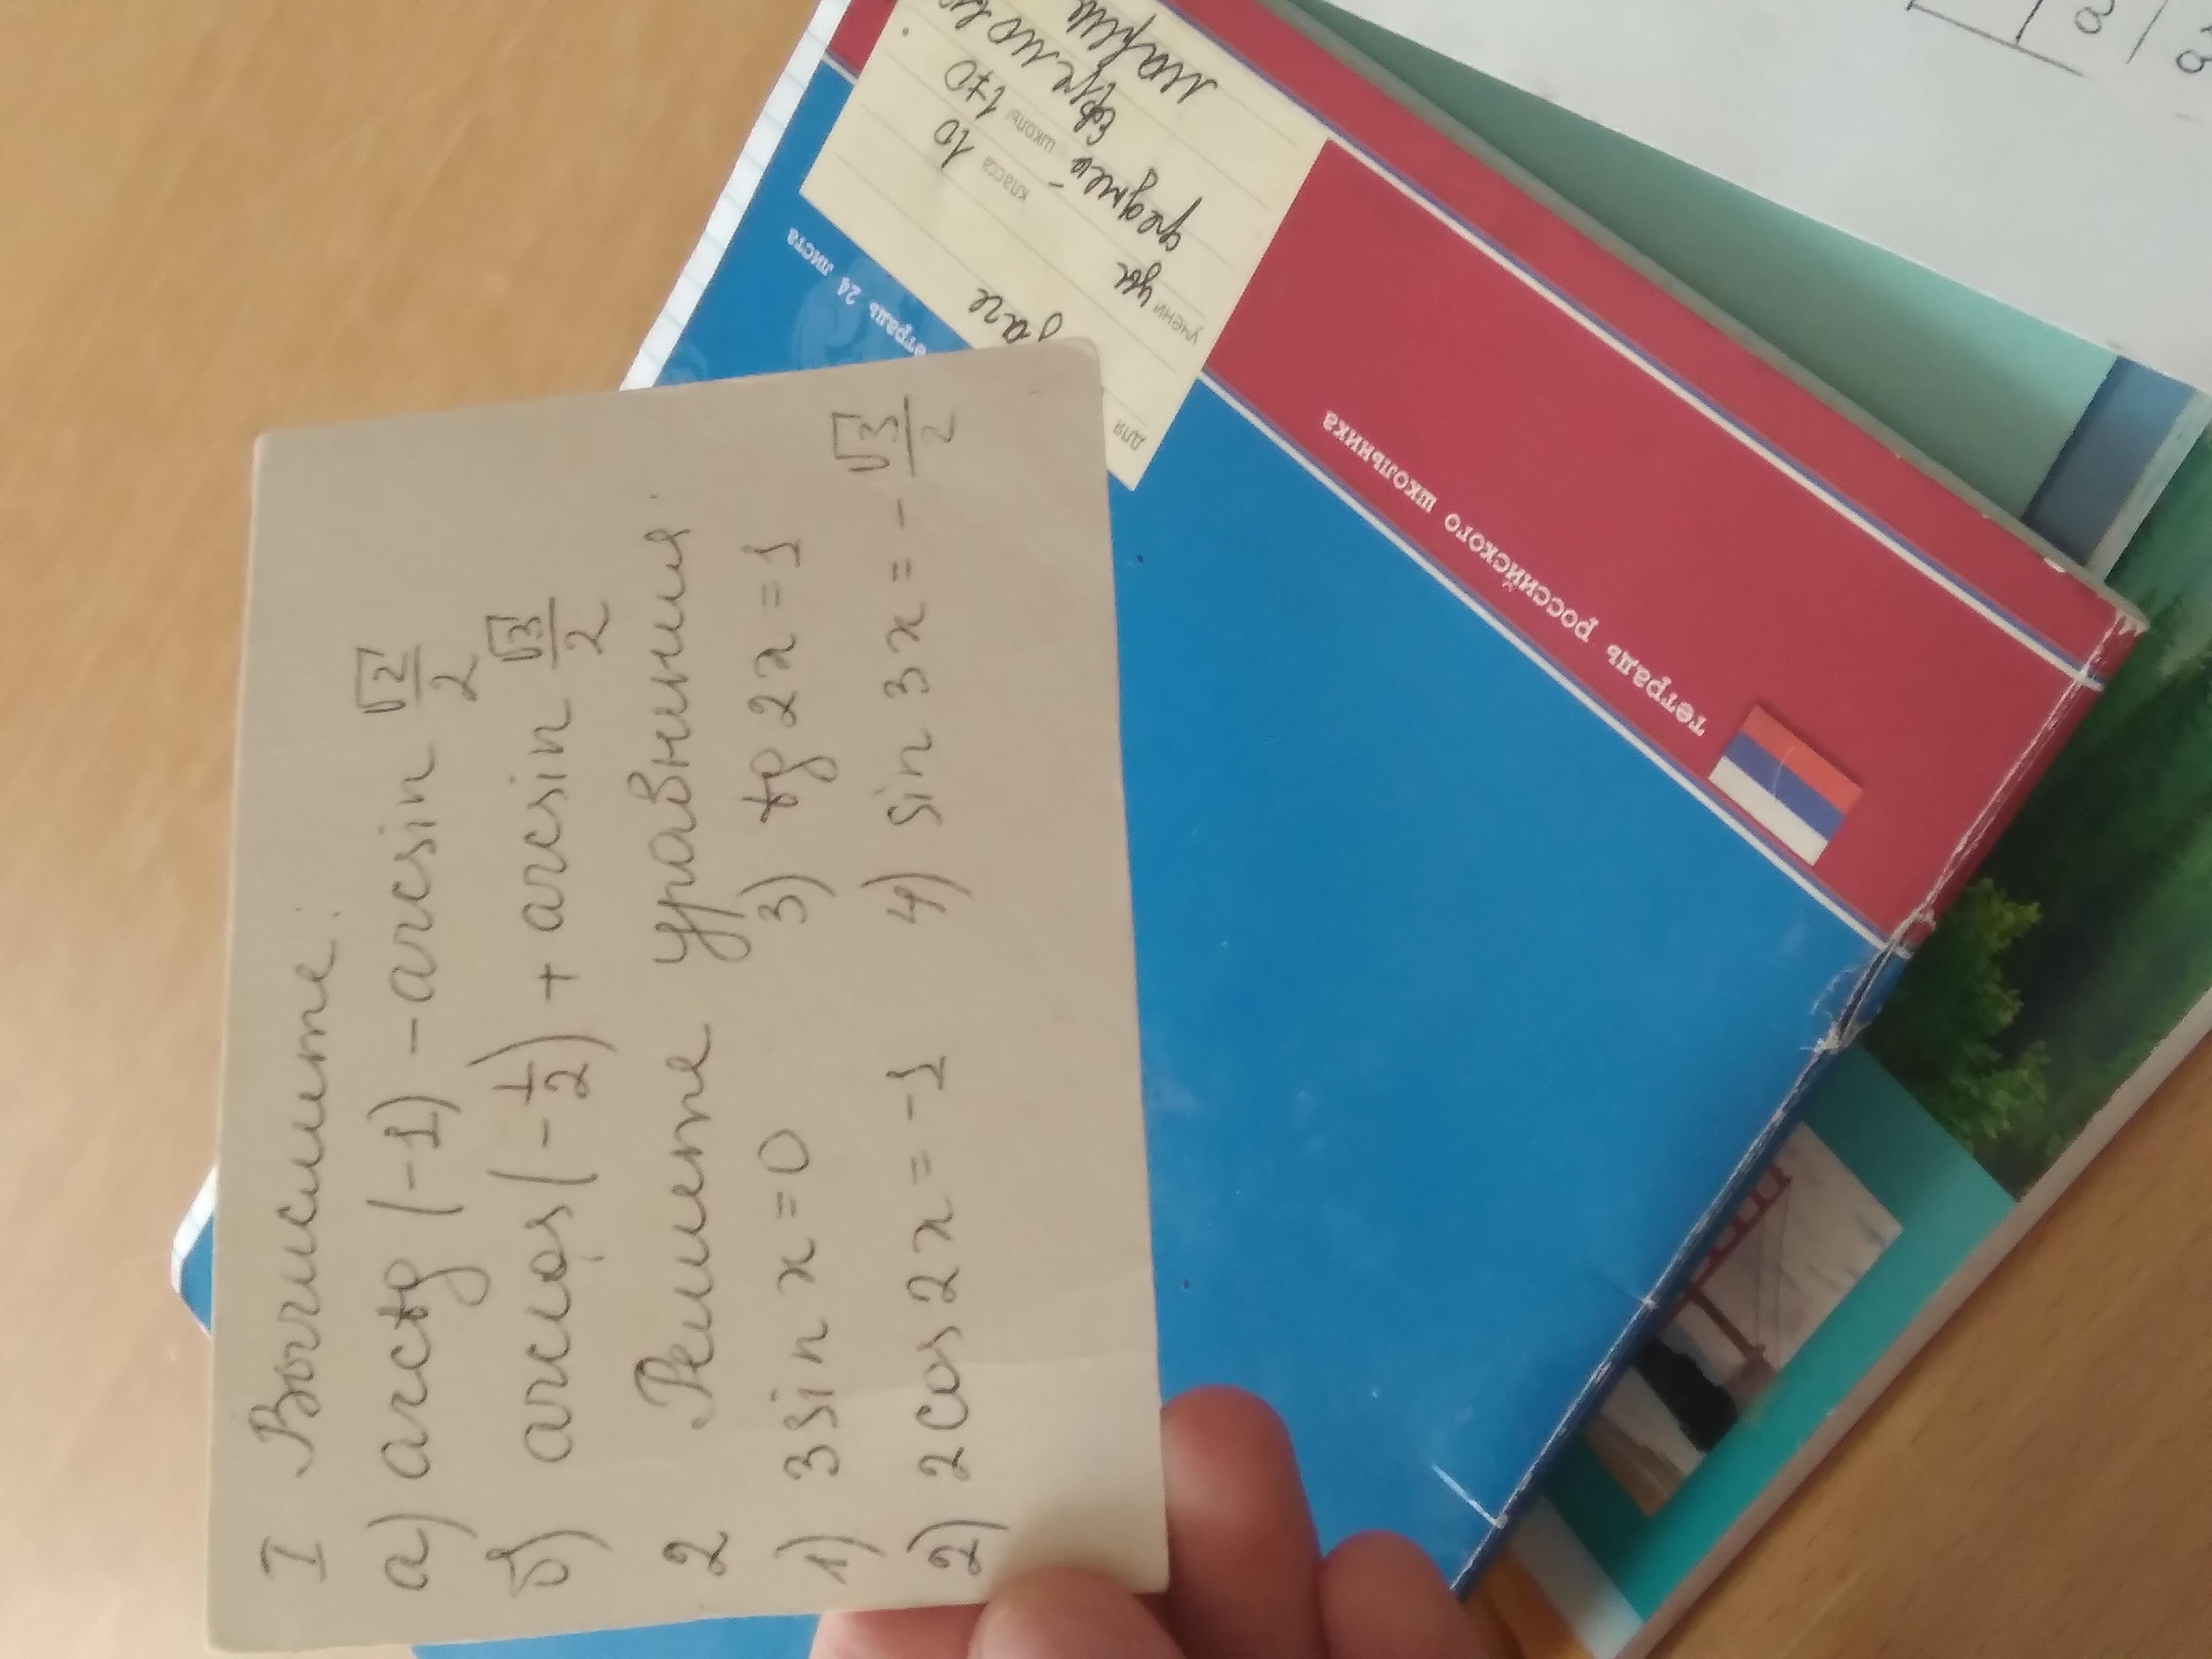 I Вычислите:
а) arctg (-1) - arcsin √2/2
б) arccos (-1/2) + arcsin √3/2
2 Решите уравнения:
1) 3 sin x = 0 3) tg 2x = 1
2) 2 cos 2x = -1 4) sin 3x = - √3/2
тетрадь российского школьника
тетрадь 24 листа
для
учени цы
класса 10
школы 170